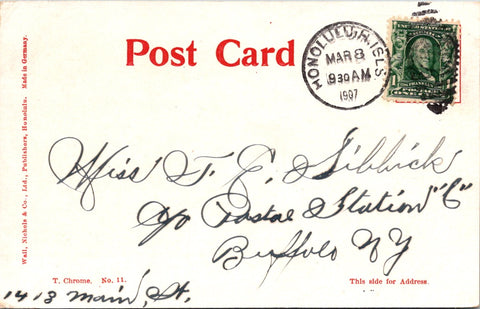 Post Card
HONOLULU, H.I. SUB.
MAR 8
930 AM
1907
Wall, Nichols & Co., Ltd., Publishers, Honolulu. Made in Germany.
Miss T. E. Sibbick
c/o Postal Station "C"
Buffalo NY
T. Chrome. No. 11.
This side for Address.
1413 Main, St.